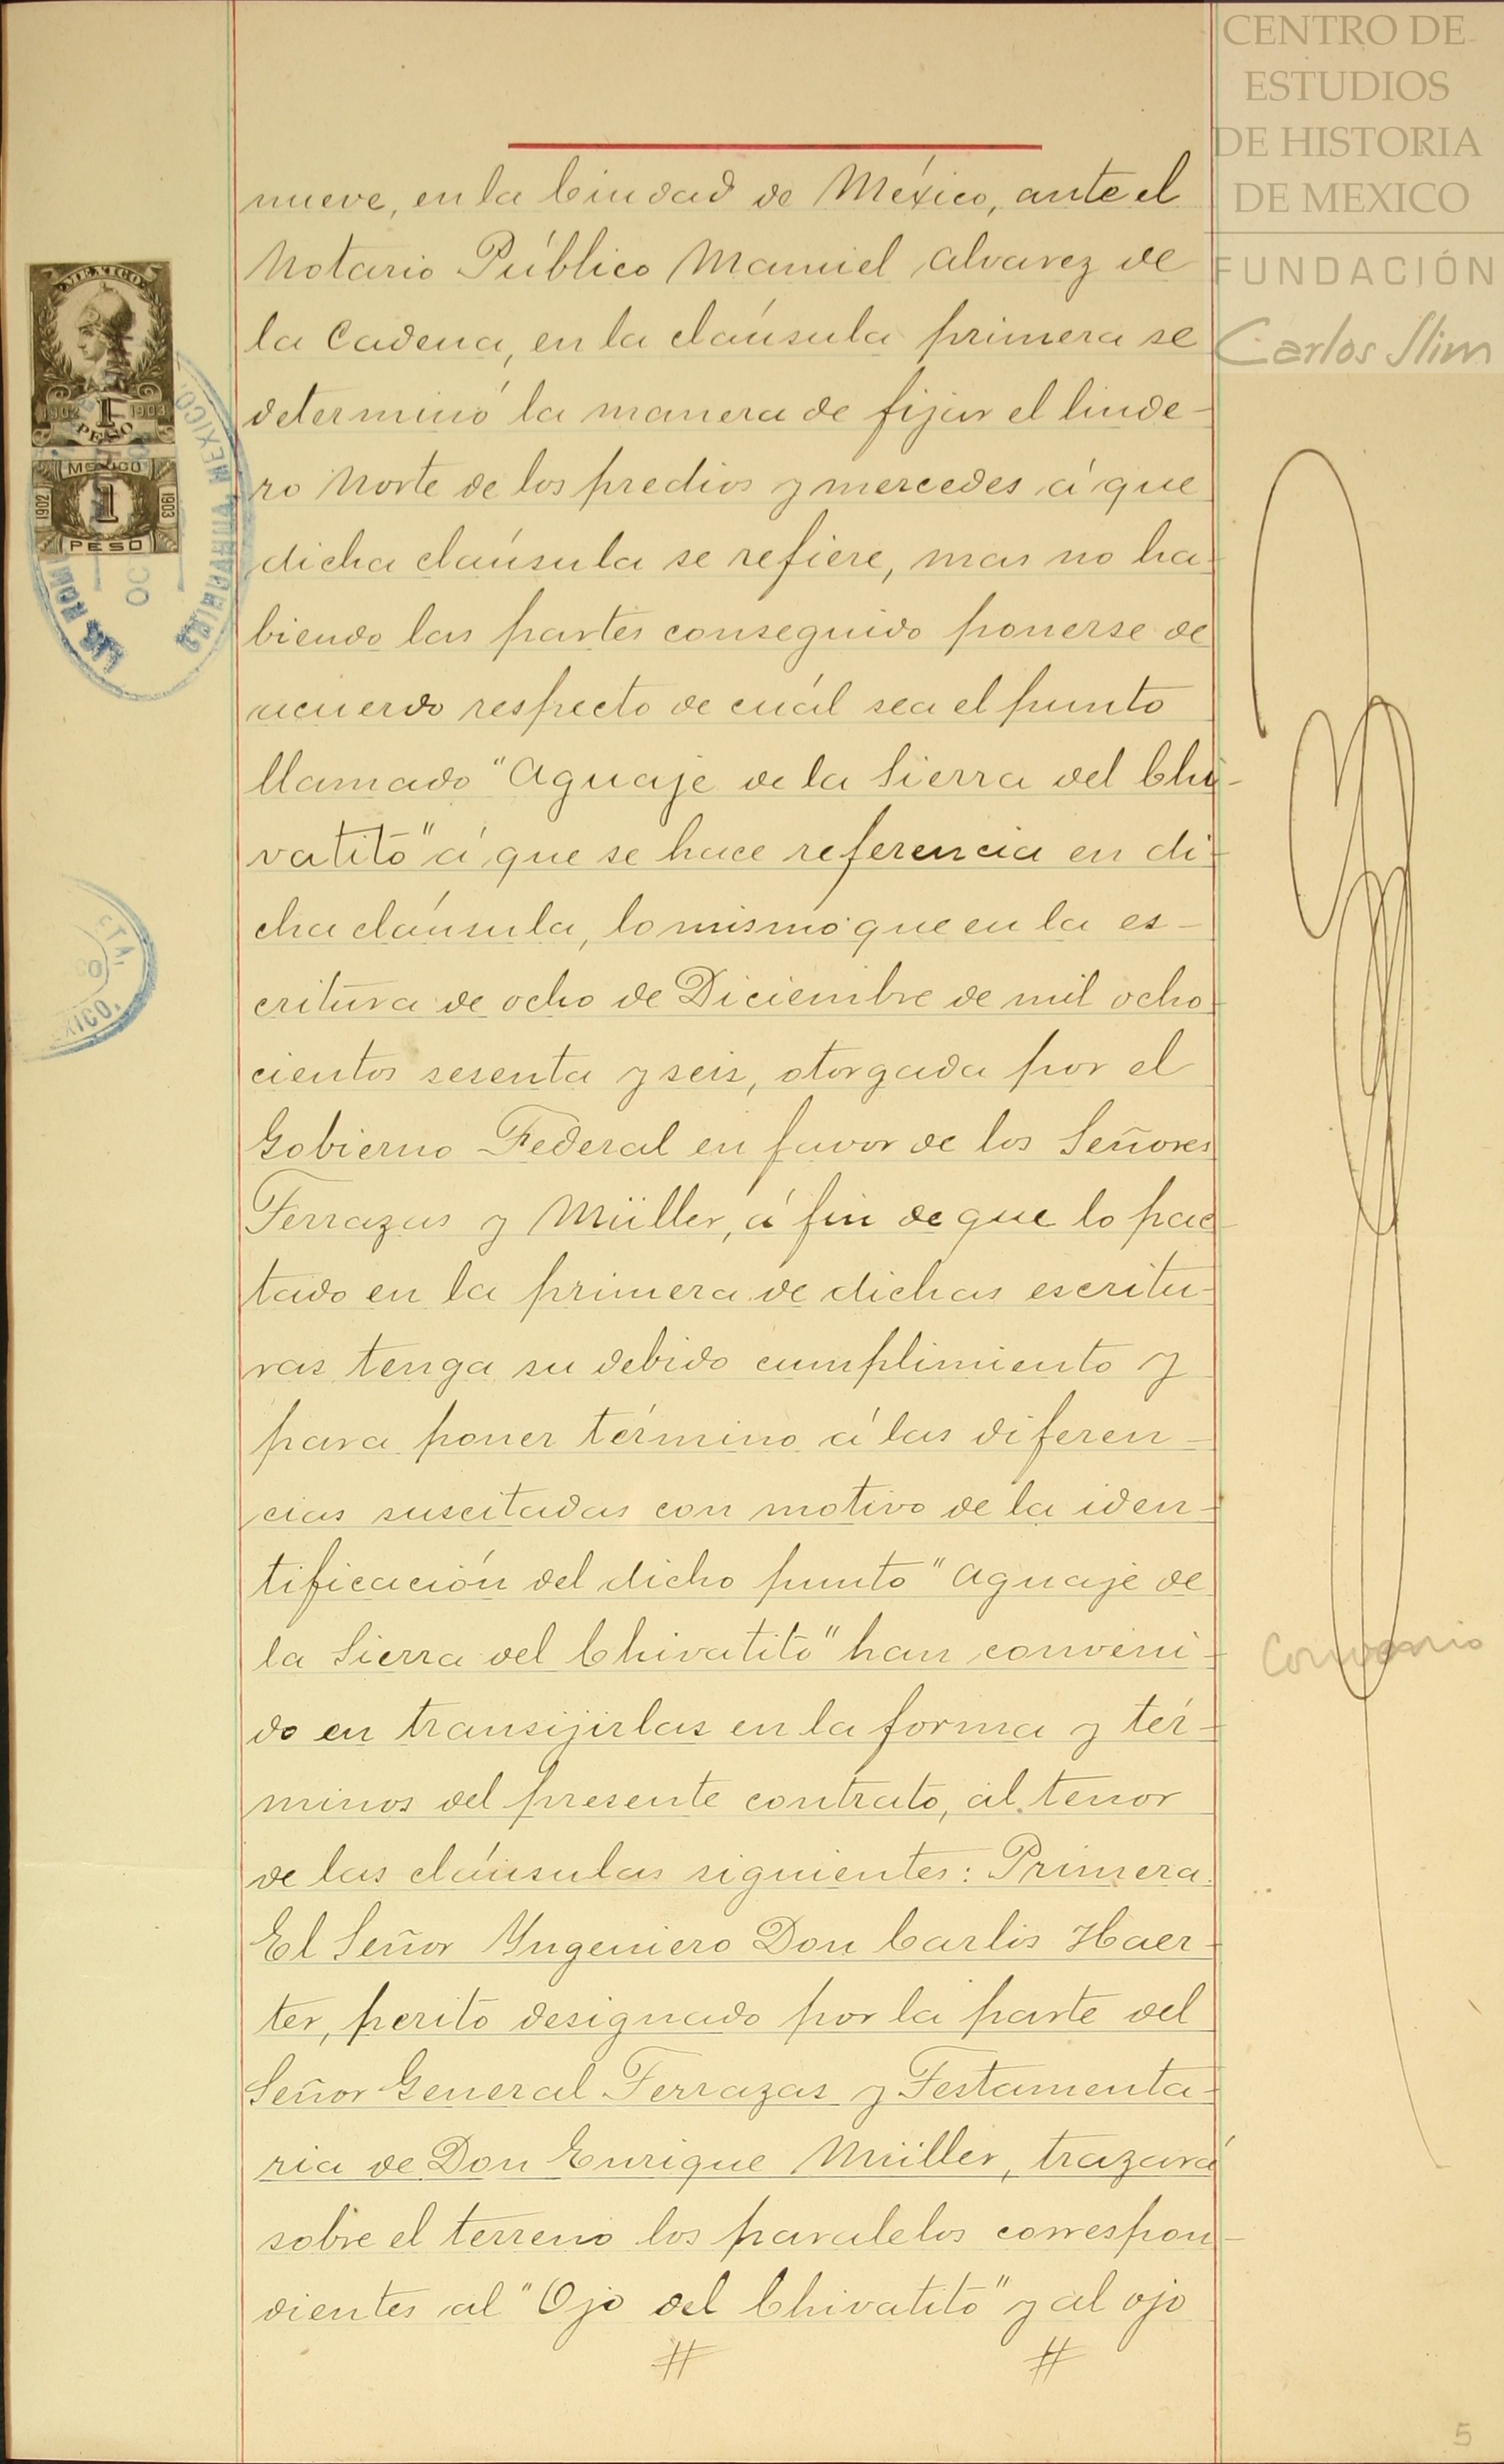 CENTRO DE
ESTUDIOS
DE HISTORIA
DE MEXICO
FUNDACIÓN
Carlos Slim
nueve, en la Ciudad de México, ante el
Notario Público Manuel Alvarez de
la Cadena, en la claúsula primera se
determinó la manera de fijar el linde-
ro Norte de los predios y mercedes á que
dicha claúsula se refiere, mas no ha-
biendo las partes conseguido ponerse de
acuerdo respecto de cuál sea el punto
llamado "Aguaje de la Sierra del Chi-
vatito" á que se hace referencia en di-
cha claúsula, lo mismo que en la es-
critura de ocho de Diciembre de mil ocho-
cientos sesenta y seis, otorgada por el
Gobierno Federal en favor de los Señores
Terrazas y Müller, á fin de que lo pac-
tado en la primera de dichas escritu-
ras tenga su debido cumplimiento y
para poner término á las diferen-
cias suscitadas con motivo de la iden-
tificación del dicho punto "Aguaje de
la Sierra del Chivatito" han conveni-
do en transijirlas en la forma y tér-
minos del presente contrato, al tenor
de las claúsulas siguientes: Primera.
El Señor Yngeniero Don Carlos Haer-
ter, perito designado por la parte del
Señor General Terrazas y Testamenta-
ria de Don Enrique Müller, trazará
sobre el terreno los paralelos correspon-
dientes al "Ojo del Chivatito" y al ojo
MEXICO
1902 1 1903
PESO
MEXICO
1902 1 1903
PESO
CHIHUAHUA MEXICO.
OC
ETA.
CO
XICO.
Convenio
5